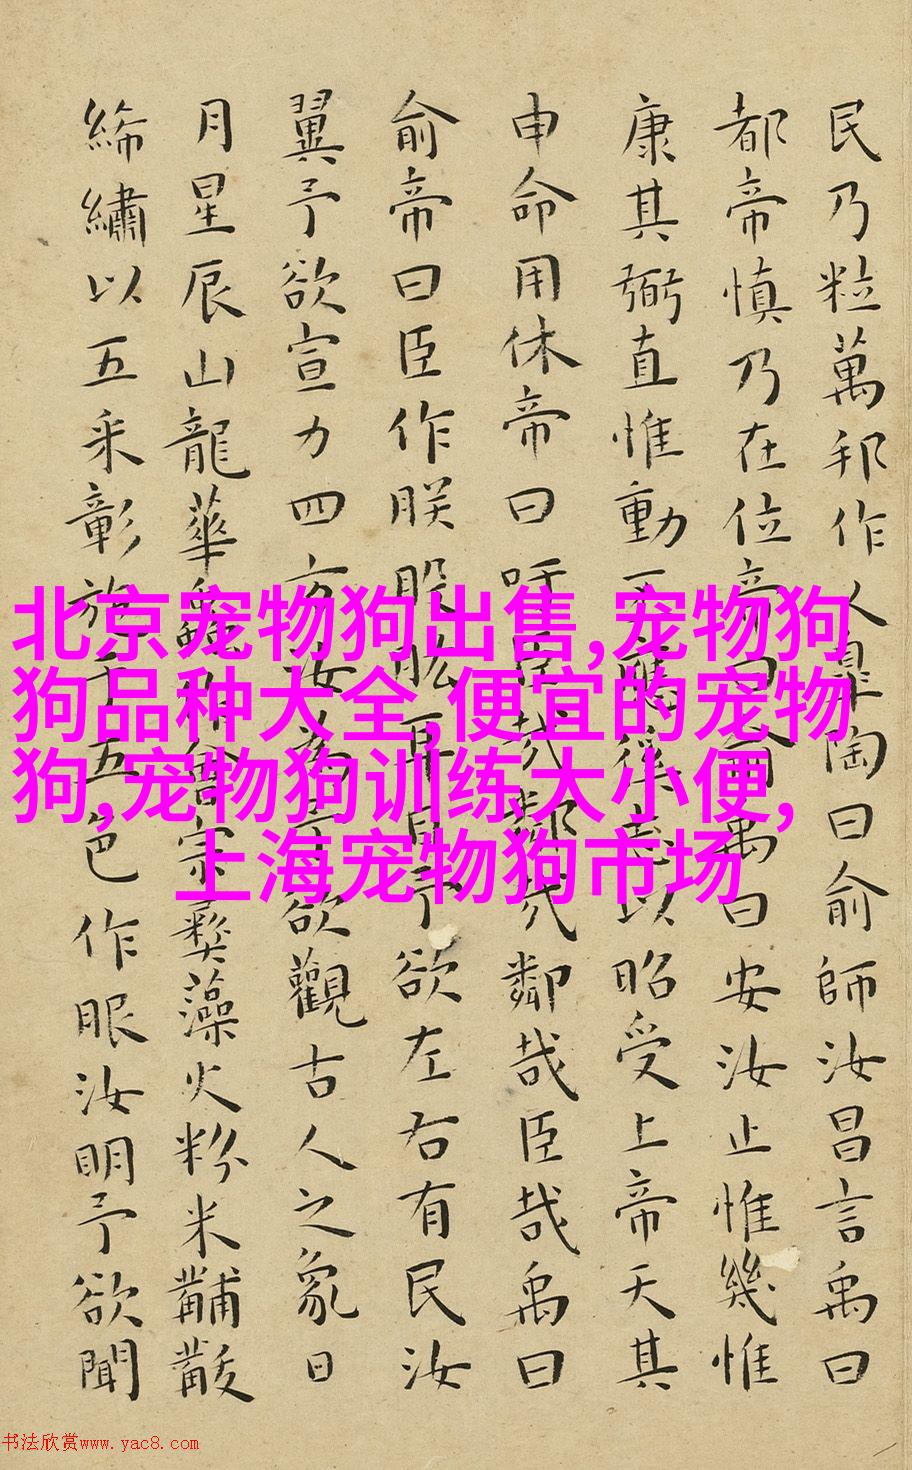 民乃粒萬邦作乂臯陶曰俞師汝昌言禹曰
都帝慎乃在位帝曰俞禹曰安汝止惟幾惟
康其弼直惟動丕應徯志以昭受上帝天其
申命用休帝曰吁臣哉鄰哉鄰哉臣哉禹曰
俞帝曰臣作朕股肱耳目予欲左右有民汝
翼予欲宣力四方汝為予欲觀古人之象日
月星辰山龍華蟲作會宗彝藻火粉米黼黻
絺繡以五采彰施于五色作服汝明予欲聞
北京宠物狗出售,宠物狗
狗品种大全,便宜的宠物
狗,宠物狗训练大小便,
上海宠物狗市场
书法欣赏www.yac8.com